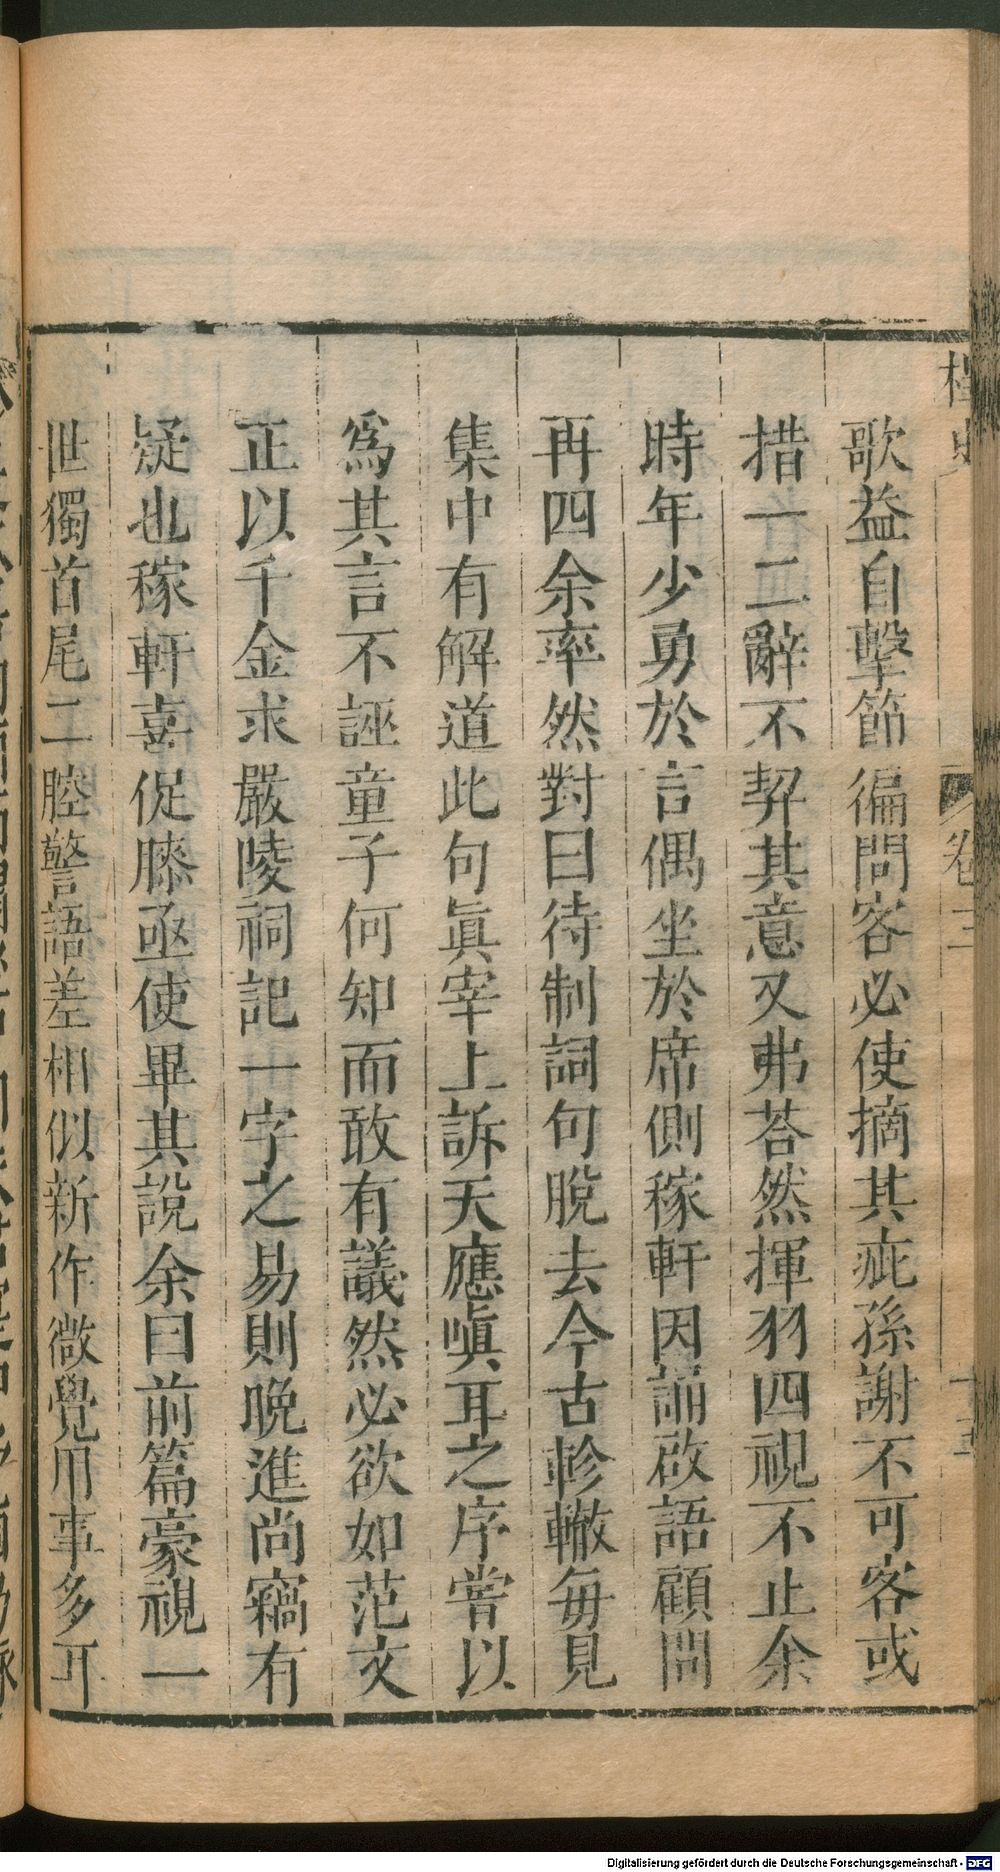 桯史
卷三
歌益自擊節徧問客必使摘其疵孫謝不可客或
措一二辭不契其意又弗荅然揮羽四視不止余
時年少勇於言偶坐於席側稼軒因誦啟語顧問
再四余率然對曰待制詞句脫去今古軫轍毎見
集中有解道此句眞宰上訴天應嗔耳之序嘗以
爲其言不誣童子何知而敢有議然必欲如范文
正以千金求嚴陵祠記一字之易則晚進尚竊有
疑也稼軒喜促膝亟使畢其說余曰前篇豪視一
世獨首尾二腔警語差相似新作微覺用事多耳
Digitalisierung gefördert durch die Deutsche Forschungsgemeinschaft - DFG